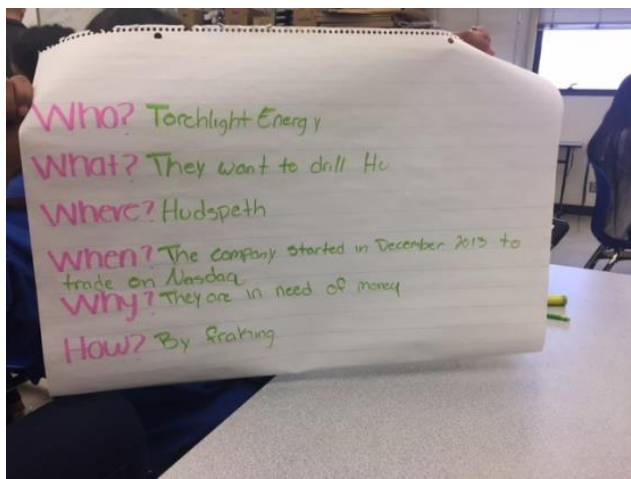 Who? Torchlight Energy
What? They want to drill Hu
Where? Hudspeth
When? The company started in December 2013 to
trade on Nasdaq
Why? They are in need of money
How? By fraking